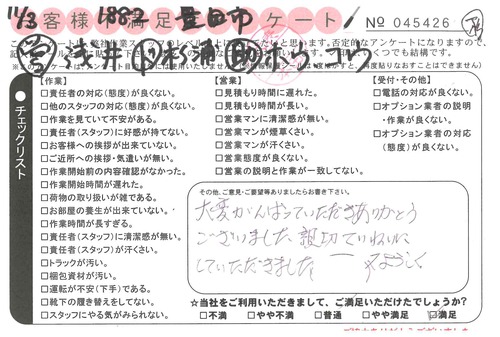 11/13 お客様満足アンケート 1882 豊田市 No 045426
浅井
チェックリスト
【作業】
□責任者の対応(態度)が良くない。
□他のスタッフの対応(態度)が良くない。
□作業を見ていて不安がある。
□責任者(スタッフ)に好感が持てない。
□お客様への挨拶が出来ていない。
□ご近所への挨拶・気遣いが無い。
□作業開始前の内容確認がなかった。
□作業開始時間が遅れた。
□荷物の取り扱いが雑である。
□お部屋の養生が出来ていない。
□作業時間が長すぎる。
□責任者(スタッフ)に清潔感が無い。
□責任者(スタッフ)が汗くさい。
□トラックが汚い。
□梱包資材が汚い。
□運転が不安(下手)である。
□靴下の履き替えをしてない。
□スタッフにやる気がみられない。
【営業】
□見積もり時間に遅れた。
□見積もり時間が長い。
□営業マンに清潔感が無い。
□営業マンが煙草くさい。
□営業マンが汗くさい。
□営業態度が良くない。
□営業の説明と作業が一致してない。
【受付・その他】
□電話の対応が良くない。
□オプション業者の説明
・作業が良くない。
□オプション業者の対応
(態度)が良くない。
その他、ご意見・ご要望等ありましたらお書き下さい。
大変がんばっていただきありがとう
ございました 親切ていねいに
していただきました。
☆当社をご利用いただきまして、ご満足いただけたでしょうか?
□不満 □やや不満 □普通 □やや満足 □満足